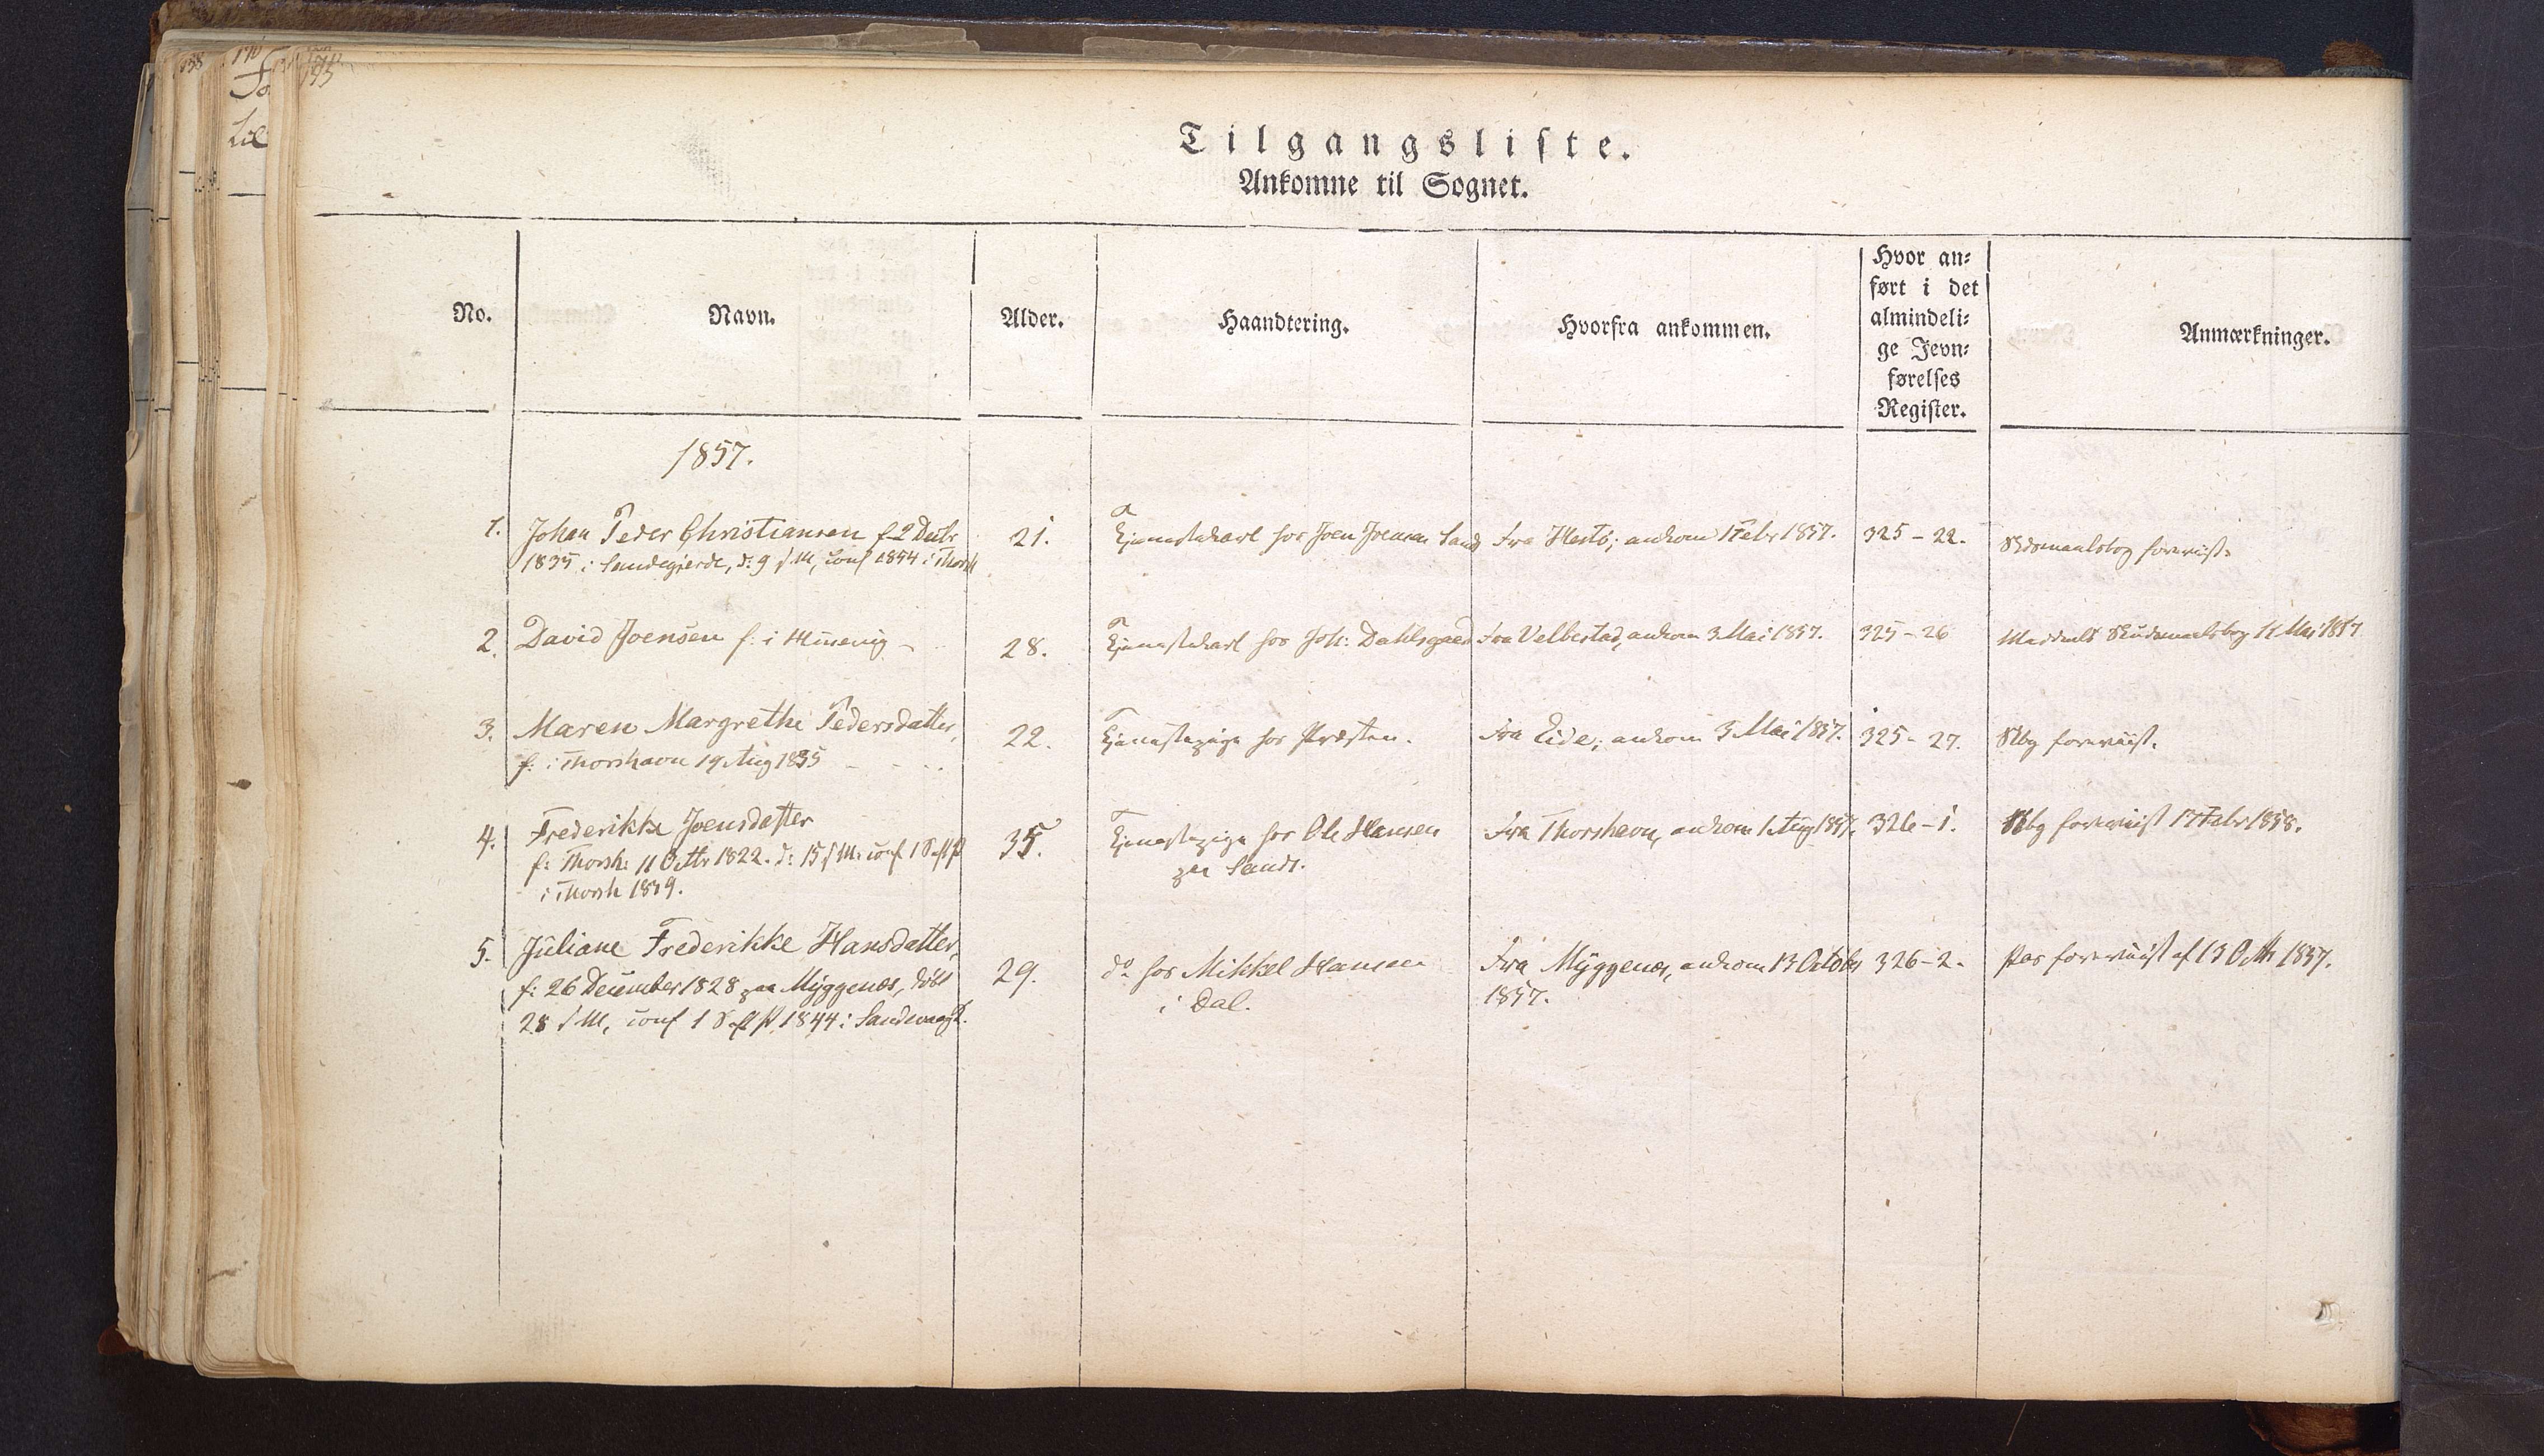 Tilgangsliste.
Ankomne til Sognet.
No.
Navn.
Alder.
Haandtering.
Hvorfra ankommen.
Hvor an-
ført i det
almindeli-
ge Jevn-
førelses
Register.
Anmærkninger.
1857.
1. Johan Peder Christiansen f. 2 Decbr 21. Tjenestekarl hos Joen Joensen Sand Fra Hestö; ankom 1 Febr 1857. 325-22. Skdsmaalsbog foreviist.
1835 i Sandegjerde, d: 9 s. M, conf 1854 i Thorsh
2. David Joensen f: i 28. Tjenestekarl hos Joh: Dahlsgaard Fra Velbestad, ankom 3 Mai 1857. 325-26 Meddeelt Skudsmaalsbog Mai 1857
3. Maren Margrethe Pedersdatter, 22. Tjenestepige hos Præsten. Fra Eide; ankom 3 Mai 1857. 325-27. Skbg foreviist.
f: i Thorshavn 19 Aug 1835
4. Frederikke Joensdatter 35. Tjenestepige hos Ole Hansen Fra Thorshavn, ankom 1 Aug 1857. 326-1. Skbg foreviist 17 Febr 1858.
f: Thorsh: 11 Octbr 1822. d: 15 s. M: conf 1 S. e. P. paa Sand.
i Thorsh 1839.
5. Juliane Frederikke Hansdatter, 29. do hos Mikkel Hansen Fra Myggenæs, ankom 13 Octobr 326-2. Pas foreviist af 13 Octbr 1857.
f: 26 December 1828 paa Myggenæs, döbt i Dal. 1857.
28 s. M, conf 1 S. e. P. 1844 i Sandevaag